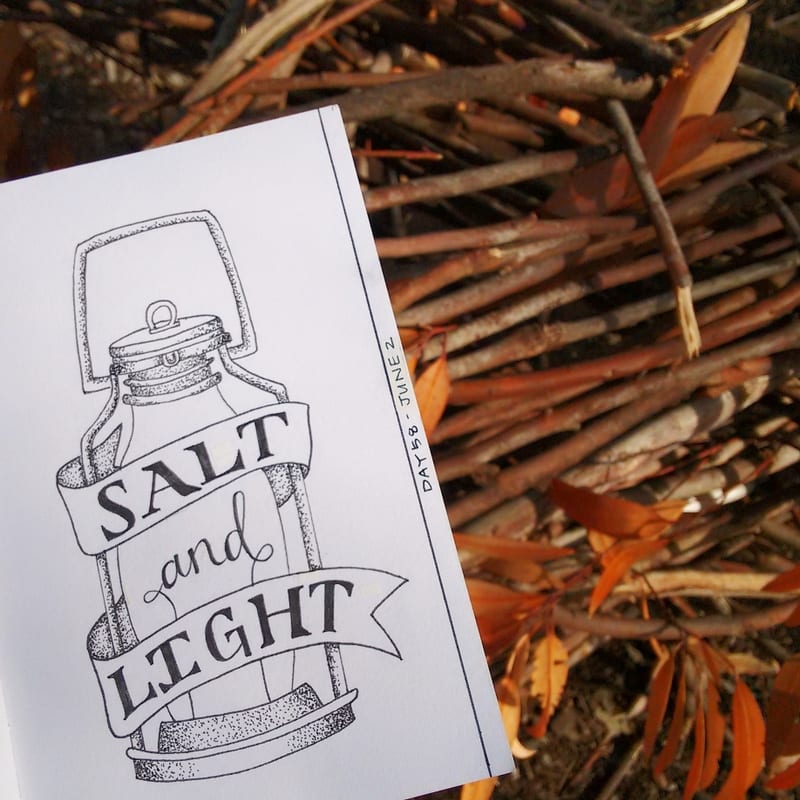 SALT
and
LIGHT
DAY 58 - JUNE 2